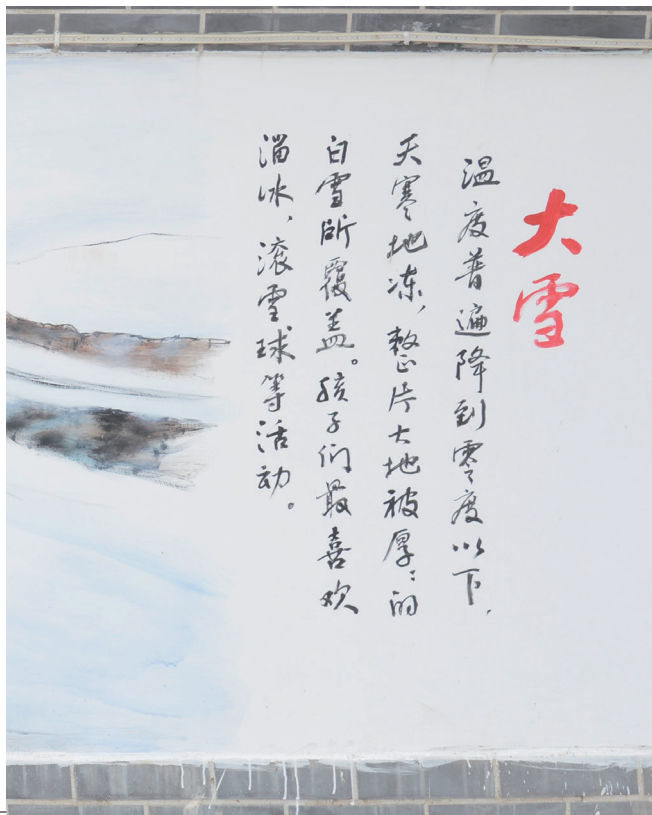 大雪
温度普遍降到零度以下，
天寒地冻，整片大地被厚：的
白雪所覆盖。孩子们最喜欢
溜冰、滚雪球等活动。